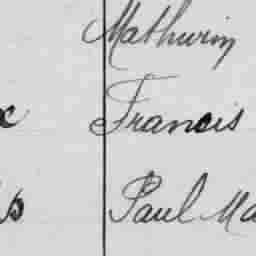 Mathurin
Francis
Paul Ma